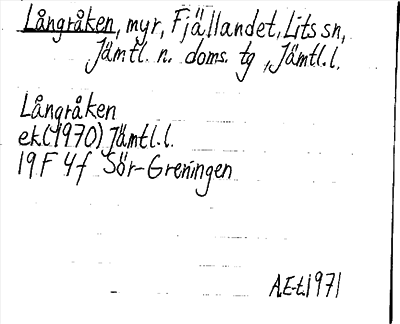 Långråken, myr, Fjällandet, Lits sn,
Jämtl. n. doms. tg, Jämtl. l.
Långråken
ek. (1970) Jämtl. l.
19F 4f Sör-Greningen
A.E-t. 1971